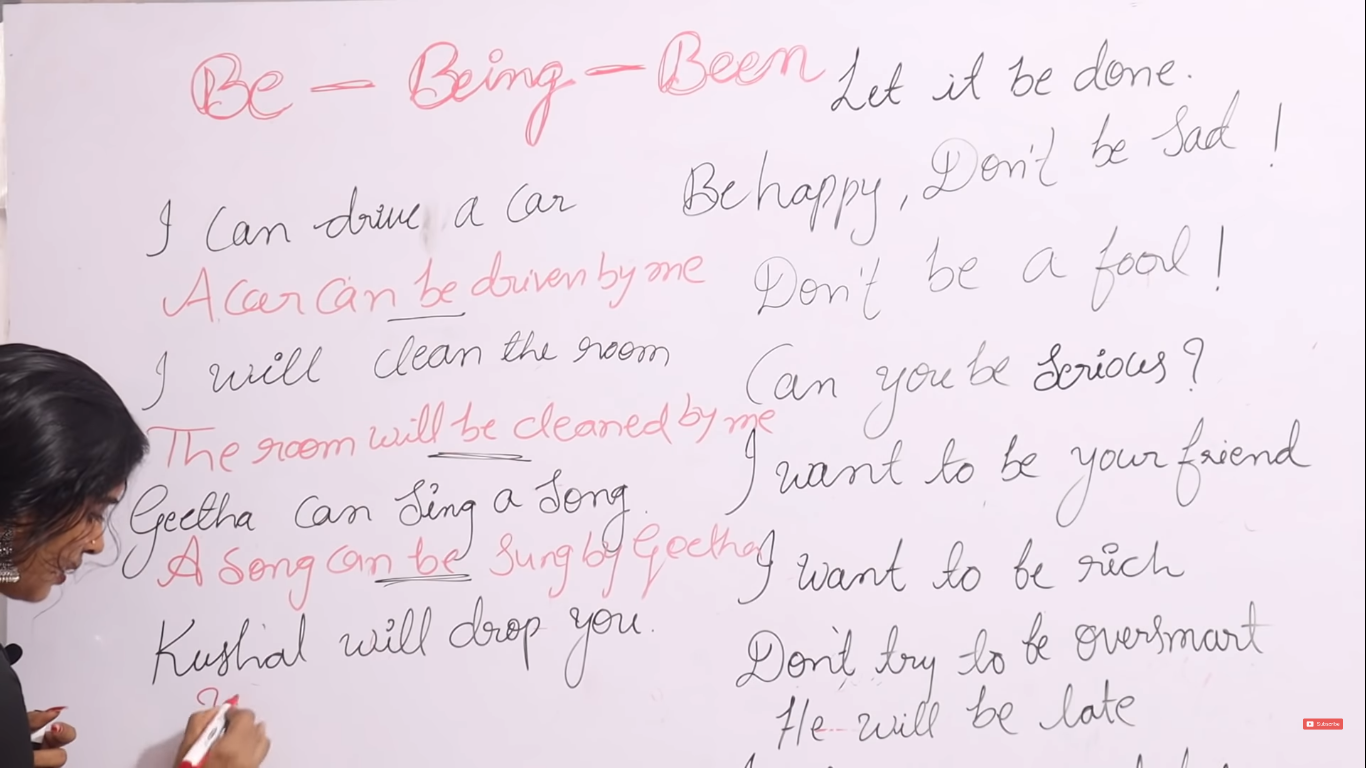 Be – Being – Been
I can drive a car
A car can be driven by me
I will clean the room
The room will be cleaned by me
Geetha can sing a song.
A song can be sung by Geetha
Kushal will drop you.
Let it be done.
Be happy, Don't be sad!
Don't be a fool!
Can you be serious?
I want to be your friend
I want to be rich
Don't try to be oversmart
He will be late
Subscribe